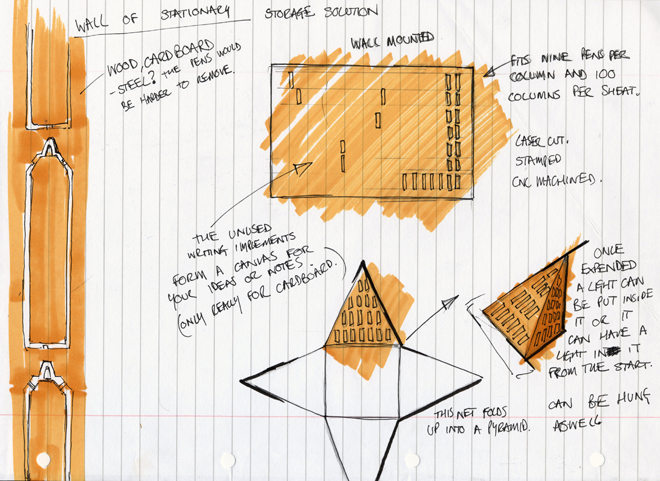 WALL OF STATIONARY STORAGE SOLUTION
WOOD, CARDBOARD
- STEEL? THE PENS WOULD
BE HARDER TO REMOVE.
WALL MOUNTED
FITS NINE PENS PER
COLUMN AND 100
COLUMNS PER SHEAT.
LASER CUT.
STAMPED
CNC MACHINED.
THE UNUSED
WRITING IMPLEMENTS
FORM A CANVAS FOR
YOUR IDEAS OR NOTES.
(ONLY REALLY FOR CARDBOARD.
ONCE
EXPENDED
A LIGHT CAN
BE PUT INSIDE
IT OR IT
CAN HAVE A
LIGHT IN IT
FROM THE START.
CAN BE HUNG
ASWELL
THIS NET FOLDS
UP INTO A PYRAMID.